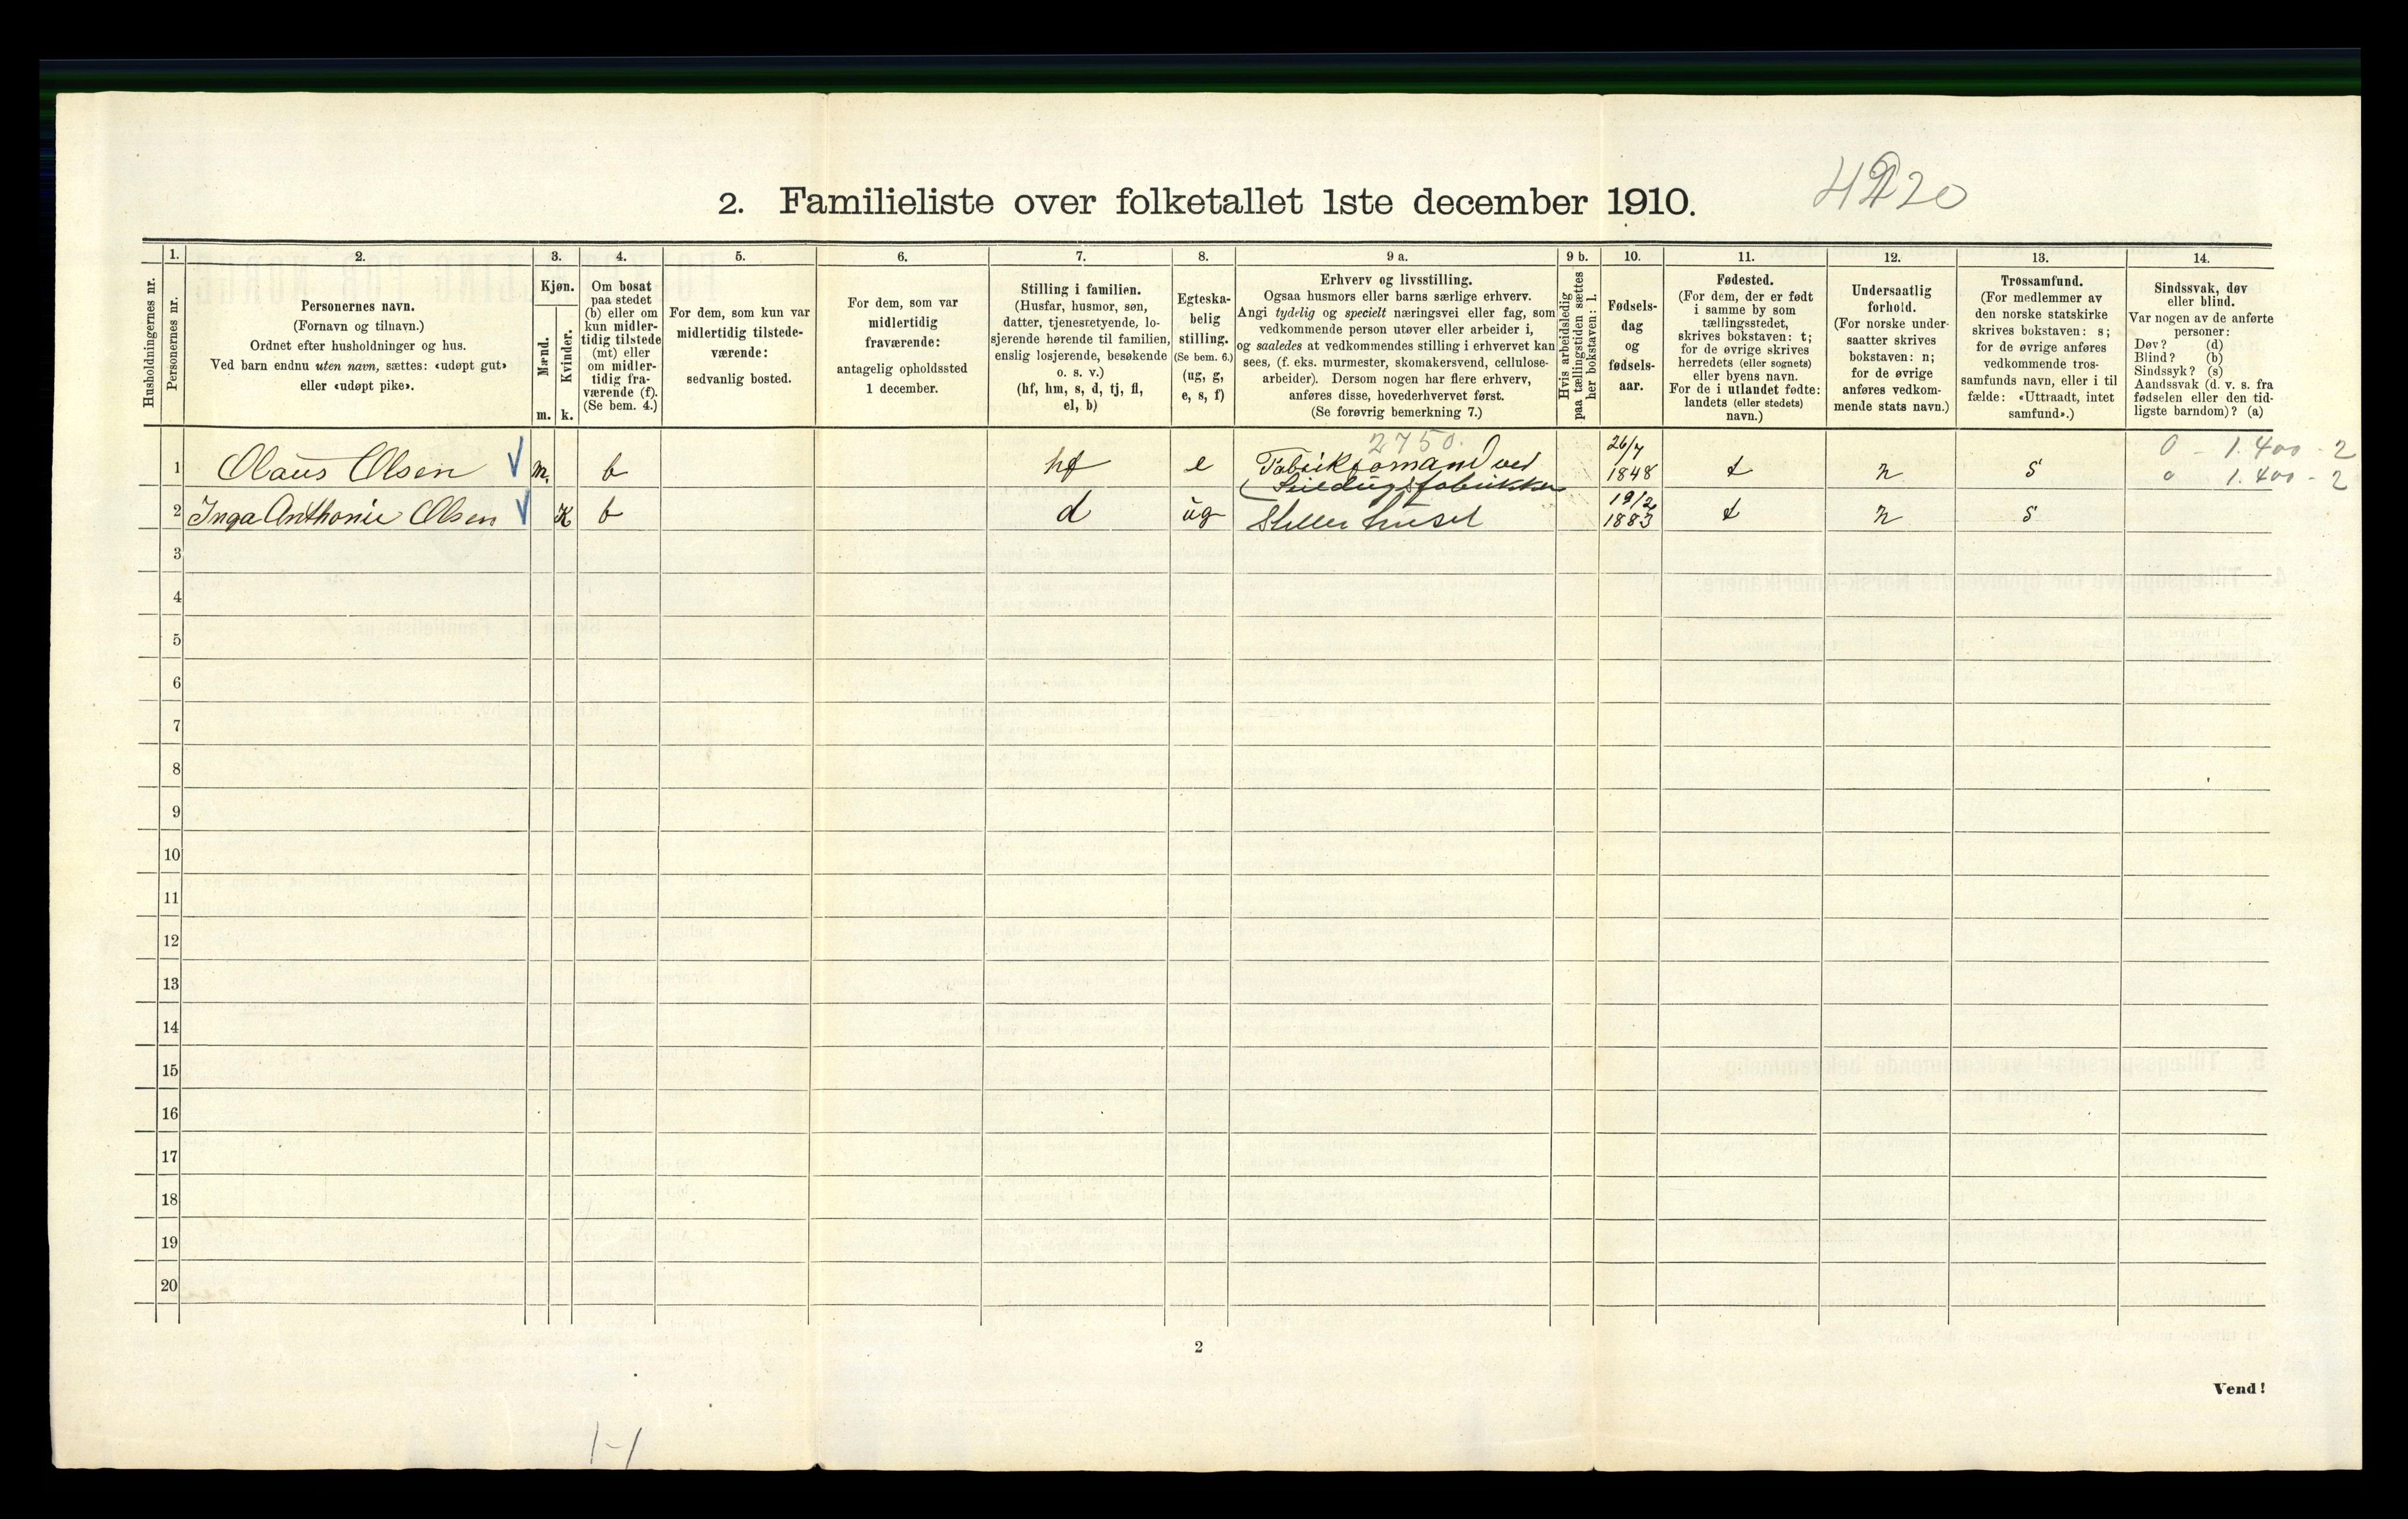 4220
2. Familieliste over folketallet 1ste december 1910.
Husholdningernes nr.
1.
Personernes nr.
2.
Personernes navn.
(Fornavn og tilnavn.)
Ordnet efter husholdninger og hus.
Ved barn endnu uten navn, sættes: «udøpt gut»
eller «udøpt pike».
3.
Kjøn.
Mænd.
m.
Kvinder.
k.
4.
Om bosat
paa stedet
(b) eller om
kun midler-
tidig tilstede
(mt) eller
om midler-
tidig fra-
værende (f).
(Se bem. 4.)
5.
For dem, som kun var
midlertidig tilstede-
værende:
sedvanlig bosted.
6.
For dem, som var
midlertidig
fraværende:
antagelig opholdssted
1 december.
7.
Stilling i familien.
(Husfar, husmor, søn,
datter, tjenestetyende, lo-
sjerende hørende til familien,
enslig losjerende, besøkende
o. s. v.)
(hf, hm, s, d, tj, fl,
el, b)
8.
Egteska-
belig
stilling.
(Se bem. 6.)
(ug, g,
e, s, f)
9 a.
Erhverv og livsstilling.
Ogsaa husmors eller barns særlige erhverv.
Angi tydelig og specielt næringsvei eller fag, som
vedkommende person utøver eller arbeider i,
og saaledes at vedkommendes stilling i erhvervet kan
sees, (f. eks. murmester, skomakersvend, cellulose-
arbeider). Dersom nogen har flere erhverv,
anføres disse, hovederhvervet først.
(Se forøvrig bemerkning 7.)
9 b.
Hvis arbeidsledig
paa tællingstiden sættes
her bokstaven: l.
10.
Fødsels-
dag
og
fødsels-
aar.
11.
Fødested.
(For dem, der er født
i samme by som
tællingsstedet,
skrives bokstaven: t;
for de øvrige skrives
herredets (eller sognets)
eller byens navn.
For de i utlandet fødte:
landets (eller stedets)
navn.)
12.
Undersaatlig
forhold.
(For norske under-
saatter skrives
bokstaven: n;
for de øvrige
anføres vedkom-
mende stats navn.)
13.
Trossamfund.
(For medlemmer av
den norske statskirke
skrives bokstaven: s;
for de øvrige anføres
vedkommende tros-
samfunds navn, eller i til
fælde: «Uttraadt, intet
samfund».)
14.
Sindssvak, døv
eller blind.
Var nogen av de anførte
personer:
Døv? (d)
Blind? (b)
Sindssyk? (s)
Aandssvak (d. v. s. fra
fødselen eller den tid-
ligste barndom)? (a)
2750.
1 Olaus Olsen m. b hf e Fabrikformand ved 26/7 1848 t n s 0 - 1.400 - 2
0 1.400 - 2
2 Inga Anthonie Olsen K b d ug Steller huset 19/2 1883 t n s
3
4
5
6
7
8
9
10
11
12
13
14
15
16
17
18
19
20
2
Vend!
1-1